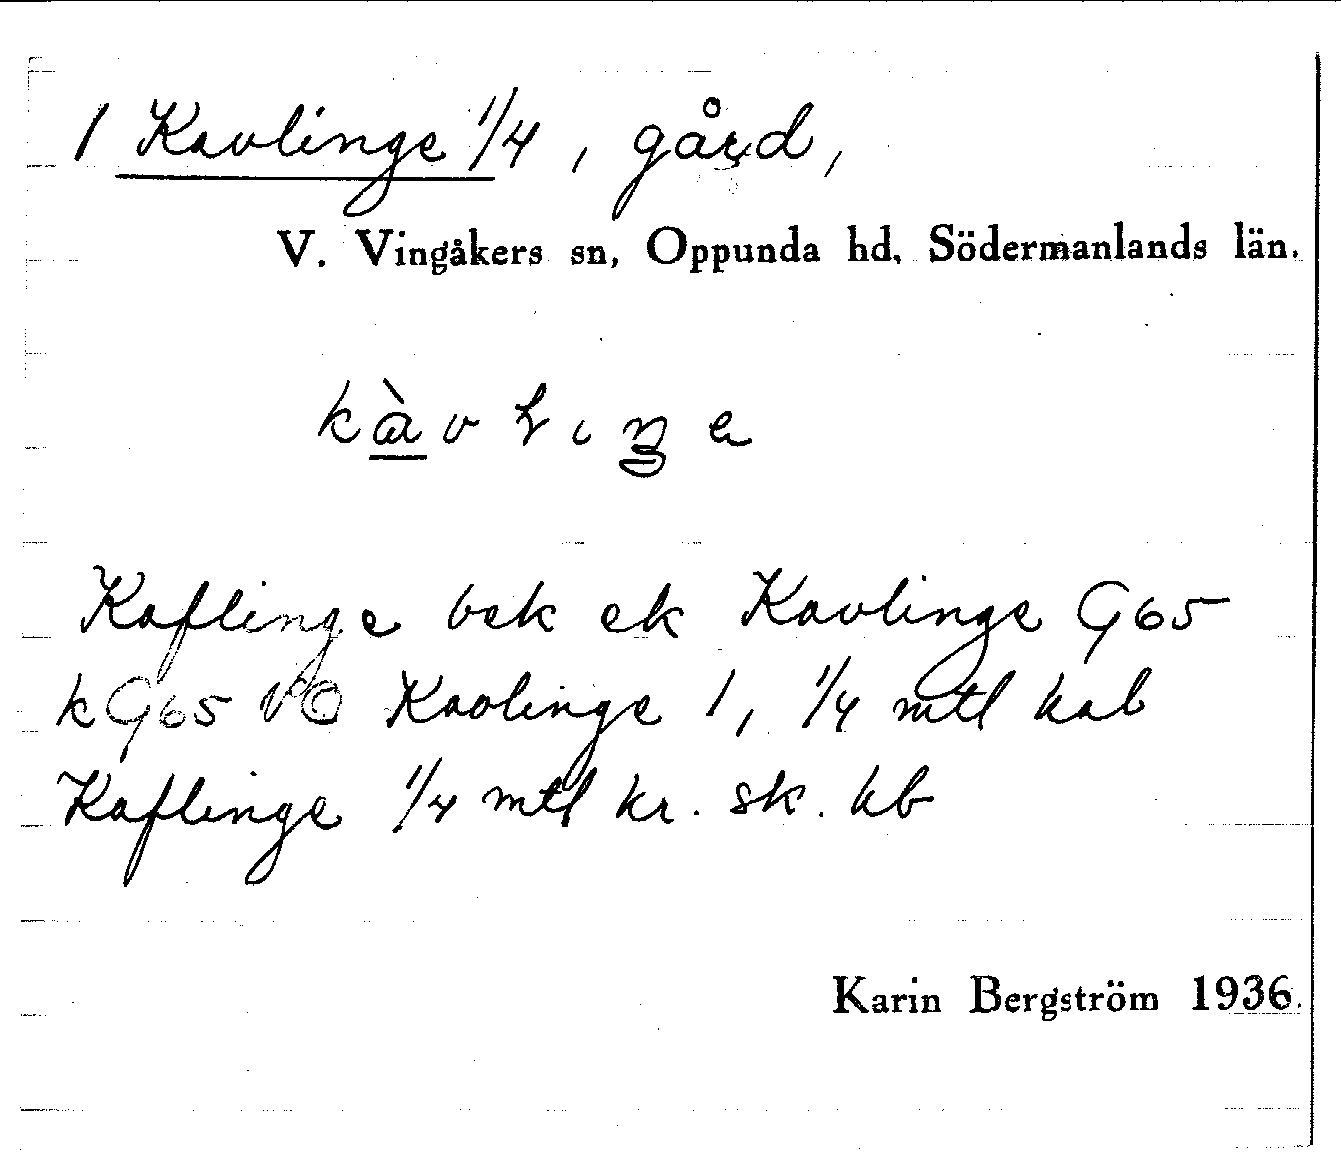 1 Kavlinge 1/4, gård,
V. Vingåkers sn, Oppunda hd, Södermanlands län.
kàvlıŋe
Kaflinge bek ek Kavlinge G65
kG65 Kavlinge 1, 1/4 mtl kab
Kaflinge 1/4 mtl kr. sk. hb
Karin Bergström 1936.